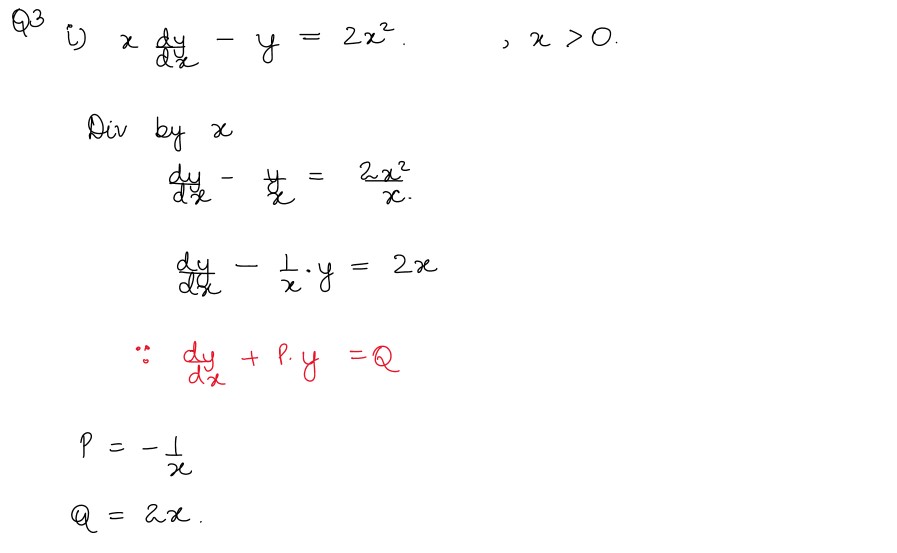 Q3 i) x dy/dx - y = 2x². , x > 0.
Div by x
dy/dx - y/x = 2x²/x.
dy/dx - 1/x . y = 2x
∵ dy/dx + P. y = Q
P = - 1/x
Q = 2x.